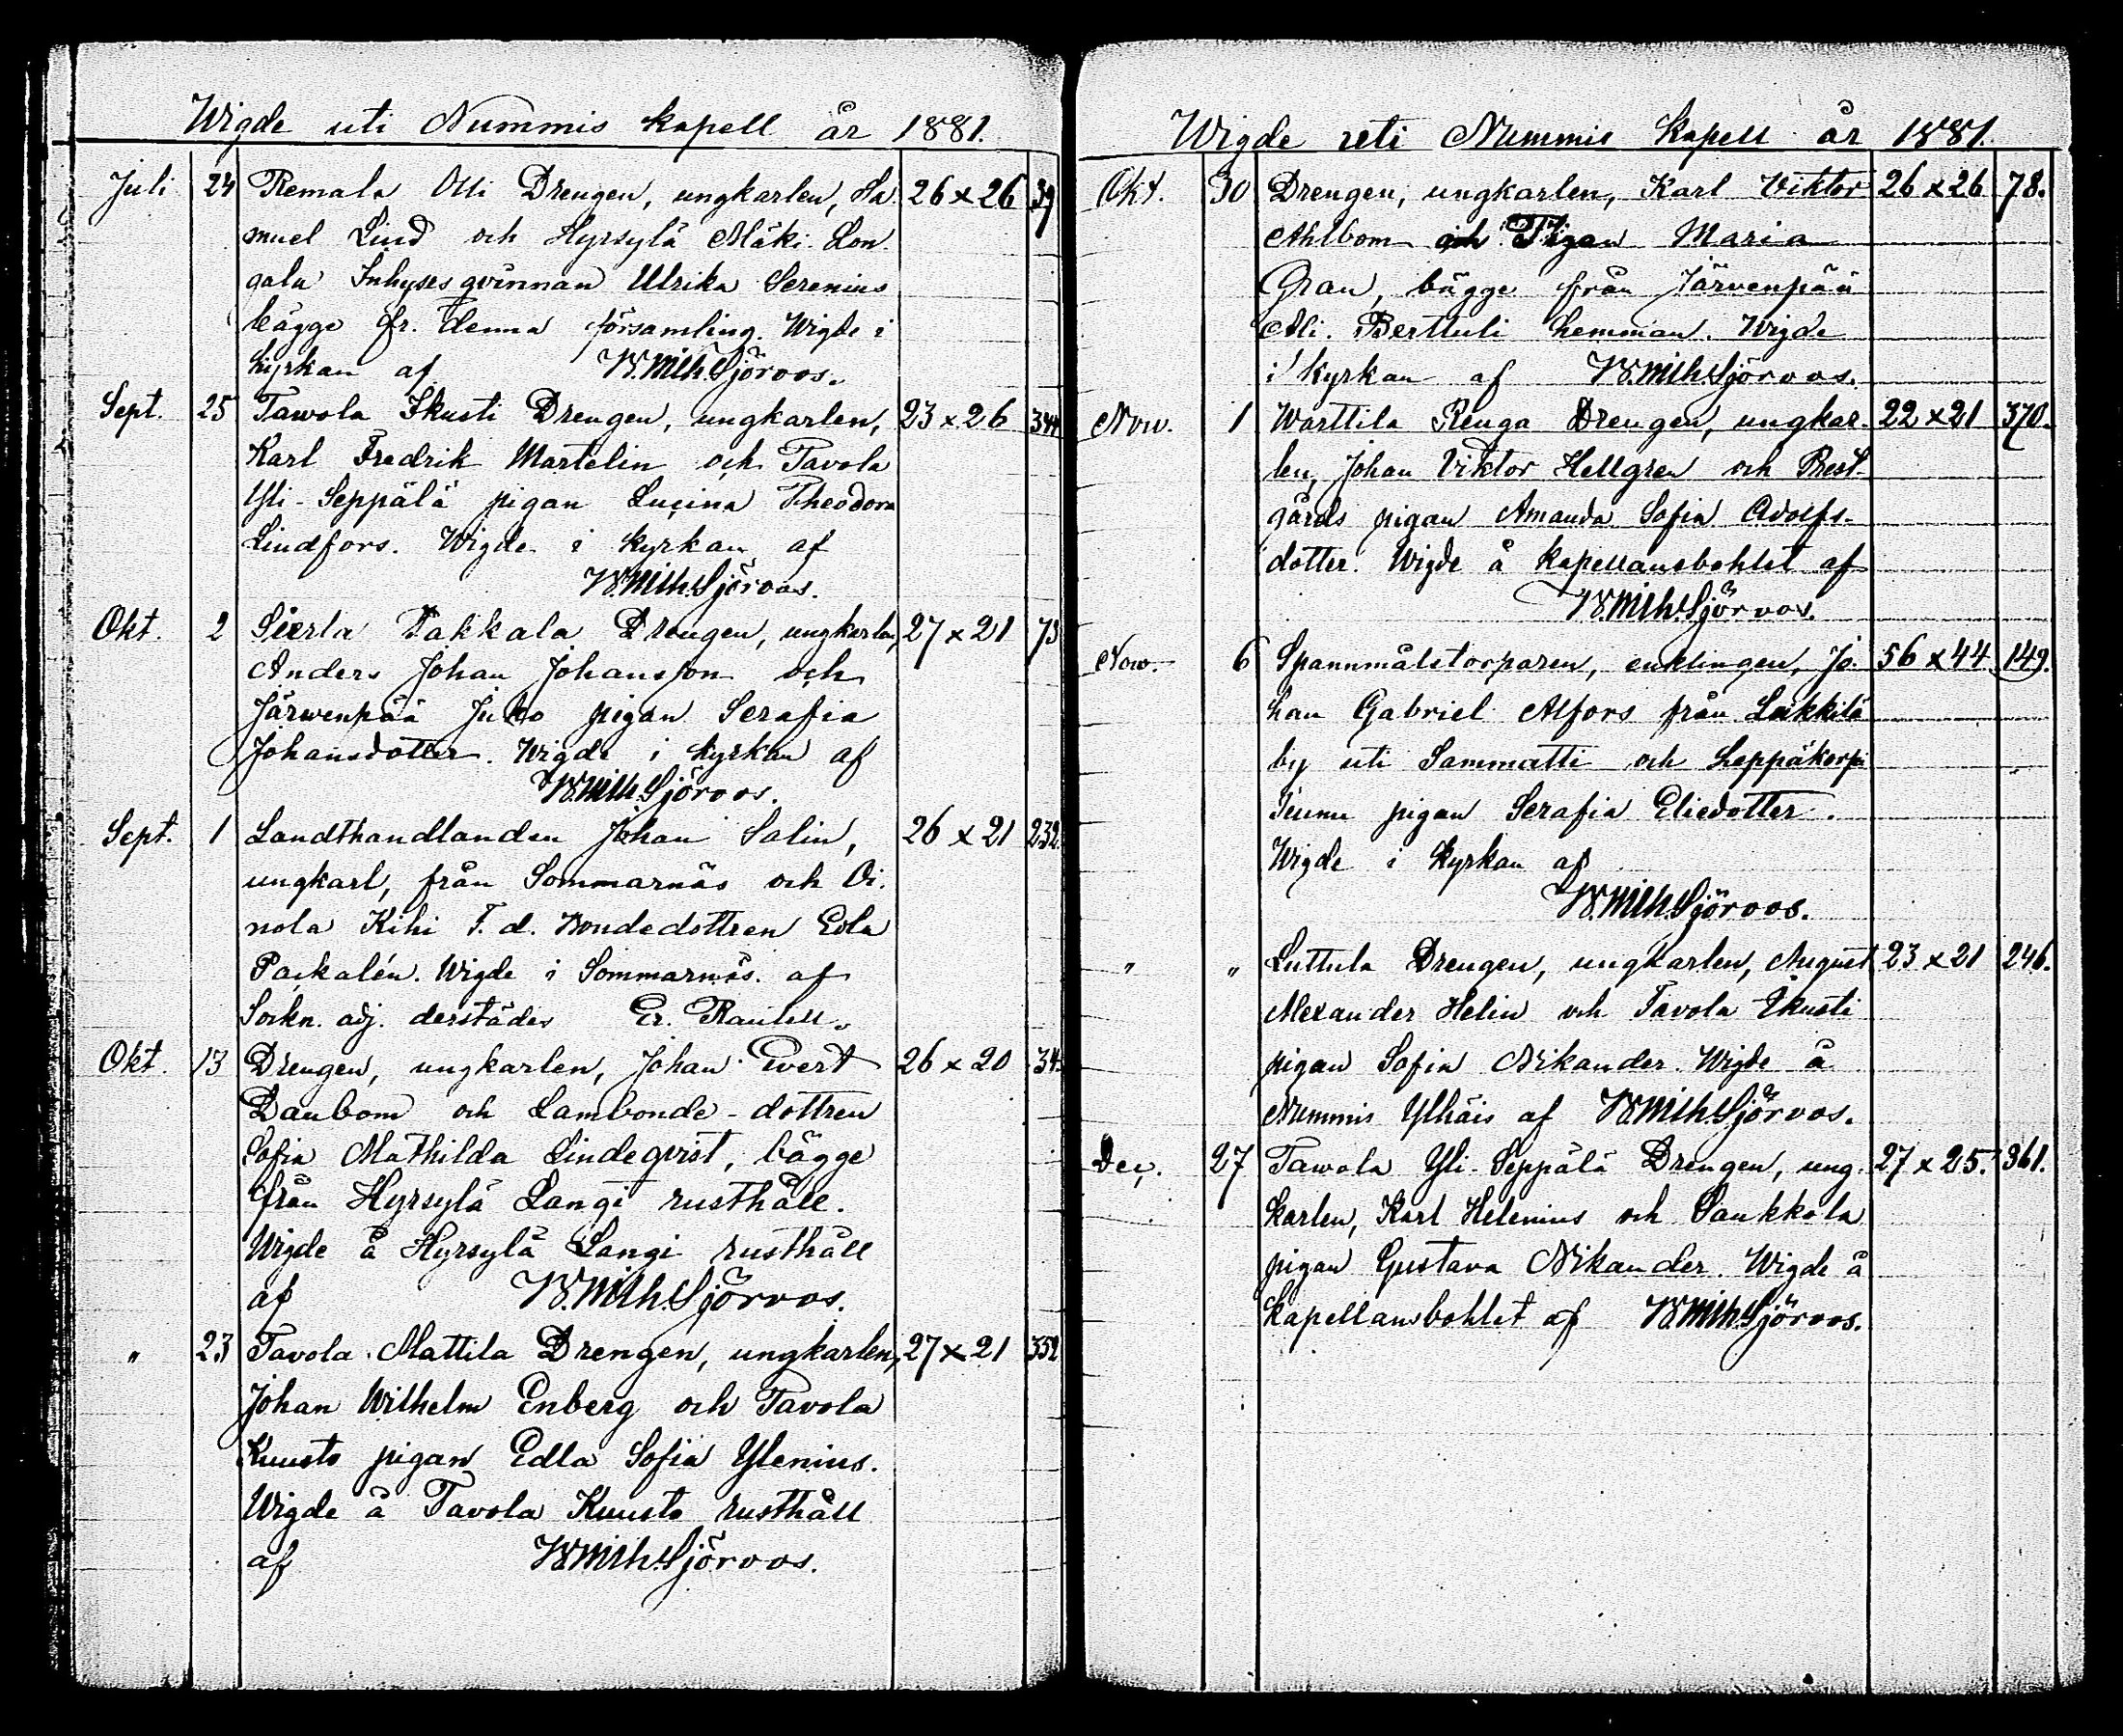 Wigde uti Nummis kapell år 1881.
Juli 24 Remala Olli Drengen, ungkarlen, Sa- 26 x 26 39
muel Lind och Hyrsylä Mäki Lon-
gala Inhyses qvinnan Ulrika Serenius
bägge fr. denna församling. Wigde i
kyrkan af W:Milh.Sjöroos.
Sept. 25 Tawola Ikusti Drengen, ungkarlen, 23 x 26 344
Karl Fredrik Martelin och Tavola
Yli-Seppälä pigan Lucina Theodora
Lindfors. Wigde i kyrkan af
W:Milh.Sjöroos.
Okt. 2 Sierla Pakkala Drengen, ungkarlen, 27 x 21 73
Anders Johan Johansson och
Järwenpää Juko pigan Serafia
Johansdotter. Wigde i kyrkan af
W:Milh.Sjöroos.
Sept. 1 Landthandlanden Johan Salin, 26 x 21 232.
ungkarl, från Sommarnäs och Oi-
nola Kihi F. d. Bondedottren Eva
Packalén. Wigde i Sommarnäs af
Sockn. adj. derstädes Er. Rautell.
Okt. 13 Drengen, ungkarlen, Johan Evert 26 x 20 34.
Danbom och Lambonde-dottren
Sofia Mathilda Lindeqvist, bägge
från Hyrsylä Langi rusthåll.
Wigde å Hyrsylä Langi rusthåll
af W:Milh.Sjöroos.
" 23 Tavola Mattila Drengen, ungkarlen, 27 x 21 352
Johan Wilhelm Enberg och Tavola
Kuusto pigan Edla Sofia Ylenius.
Wigde å Tavola Kuusto rusthåll
af W:Milh.Sjöroos.
Wigde uti Nummis kapell år 1881.
Okt. 30 Drengen, ungkarlen, Karl Viktor 26 x 26 78.
Ahlbom och Pigan Maria
Gran, bägge från Järvenpää
Ali Berttuli hemman. Wigde
i kyrkan af W:Milh.Sjöroos.
Nov. 1 Warttila Renga Drengen, ungkar- 22 x 21 370.
len, Johan Viktor Hellgren och Prest-
gårds pigan Amanda Sofia Adolfs-
dotter. Wigde å kapellansbohlet af
W:Milh.Sjöroos.
Now. 6 Spannmålstorparen, enklingen, Jo- 56 x 44. 149.
han Gabriel Alfors från Lukkilä
by uti Sammatti och Leppäkorpi
Teunu pigan Serafia Eliedotter.
Wigde i kyrkan af
W:Milh.Sjöroos.
" " Luttula Drengen, ungkarlen, August 23 x 21 246.
Alexander Helin och Tavola Ikusti
pigan Sofia Nikander. Wigde å
Nummis Ylhäis af W:Milh.Sjöroos.
Dec. 27 Tawola Yli-Seppälä Drengen, ung- 27 x 25. 361.
karlen, Karl Helenius och Saukkola
pigan Gustava Nikander. Wigde å
kapellansbohlet af W:Milh.Sjöroos.